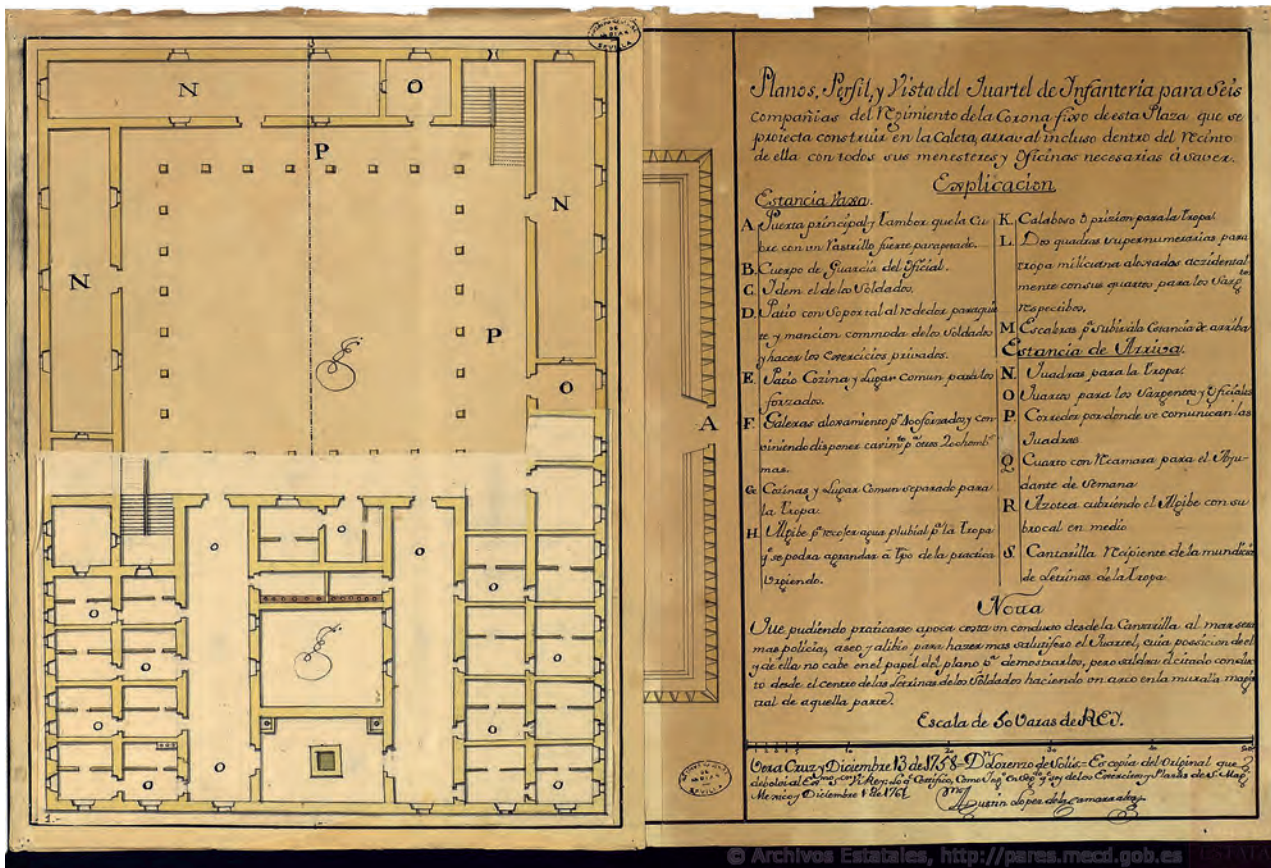 Planos, Perfil, y Vista del Quartel de Ynfanteria para Seis
compañias del Regimiento de la Corona fixo de esta Plaza que se
proiecta construir en la Caleta, arraval incluso dentro del Recinto
de ella con todos sus menesteres y Oficinas necesarias à saver.
Explicacion
Estancia vaxa.
A. Puerta principal y Tambor que la Cu
bre con un Rastrillo fuerte
B. Cuerpo de Guardia del Oficial.
C. Idem el de los Soldados.
D. Patio con Soportal al rededor para
te y mancion commoda de los Soldados
y hacer los Exercicios privados.
E. Patio Cozina y Lugar comun para los
forzados.
F. Galeras aloxamiento pª 400 forzados y con
viniendo disponer pª otros 200 homb
mas.
G. Cozinas y Lugar Comun separado para
la Tropa.
H. Algibe pª recoxer agua plubial pª la Tropa
qe se podra agrandar à tpo de la practica
Urgiendo.
K. Calaboso ò prizion para la Tropa.
L. Dos quadras supernumerarias para
tropa miliciana aloxados accidental
mente con sus quartos para los Sarg.tos
respectibos.
M Escaleras pª subir à la Estancia de arriba
Estancia de Arriva.
N. Quadras para la Tropa.
O Quartos para los Sargentos y Oficiales
P. Corredor por donde se comunican las
Quadras
Q Cuarto con Recamara para el Ayu-
dante de Semana
R Azotea cubriendo el Algibe con su
brocal en medio
S. Cantarilla Recipiente de la mundicia
de Letrinas de la Tropa.
Nota
Que pudiendo praticarse a poca costa un conducto desde la Cantarilla al mar sera
mas policia, aseo y alibio para hazer mas salutifero el Quartel, cuia posicion de el
y de ella no cabe en el papel del plano pª demostrarlos, pero saldra el citado conduc
to desde el centro de las Letrinas de los Soldados haciendo un arco en la muralla magis
tral de aquella parte.
Escala de 50 Varas de REY.
10 30 40 50
Vera Cruz y Diciembre 13 de 1758 = Dn Lorenzo de Solis = Es copia del original que
debolvi al Exmo Sor Virrey: Lo qe Certifico, Como Ingº en Segº qe soy de los Exercitos y Plazas de S. Magd
Mexico y Diciembre 1 de 1761
Agustin Lopez de la Camara Alta
N
O
P
N
N
P
O
A
O
O
O
O
O
O
O
O
O
O
O
1.-
© Archivos Estatales, http://pares.mecd.gob.es